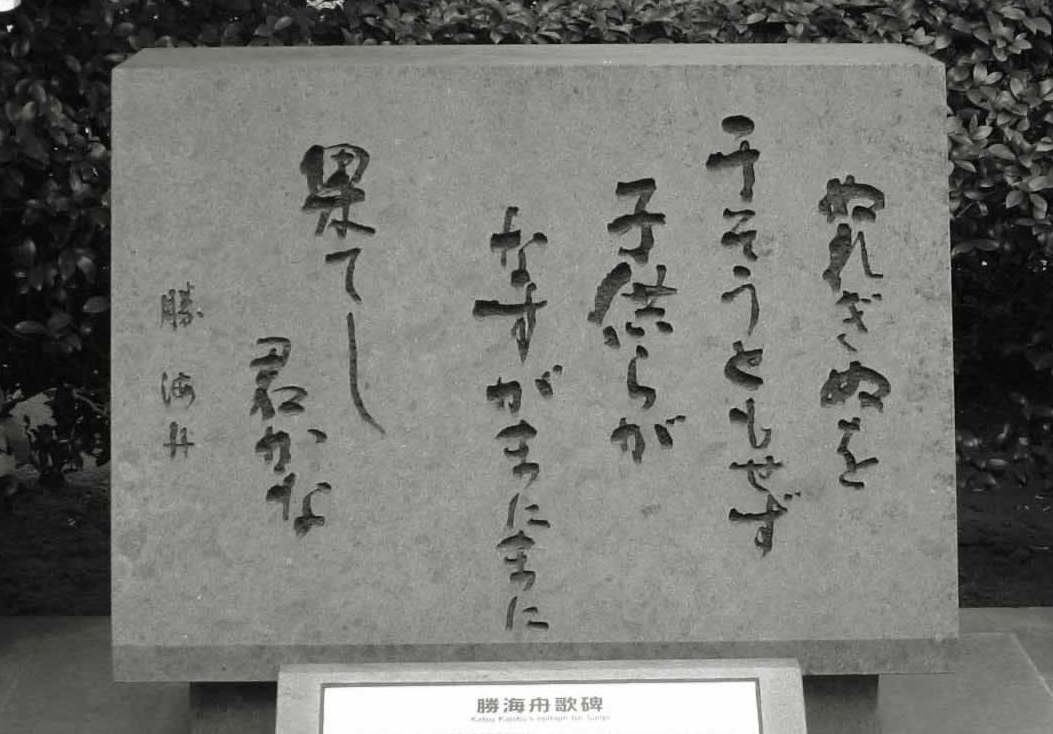 ぬれぎぬを
干そうともせず
子供らが
なすがまにまに
果てし
君かな
勝海舟
勝海舟歌碑